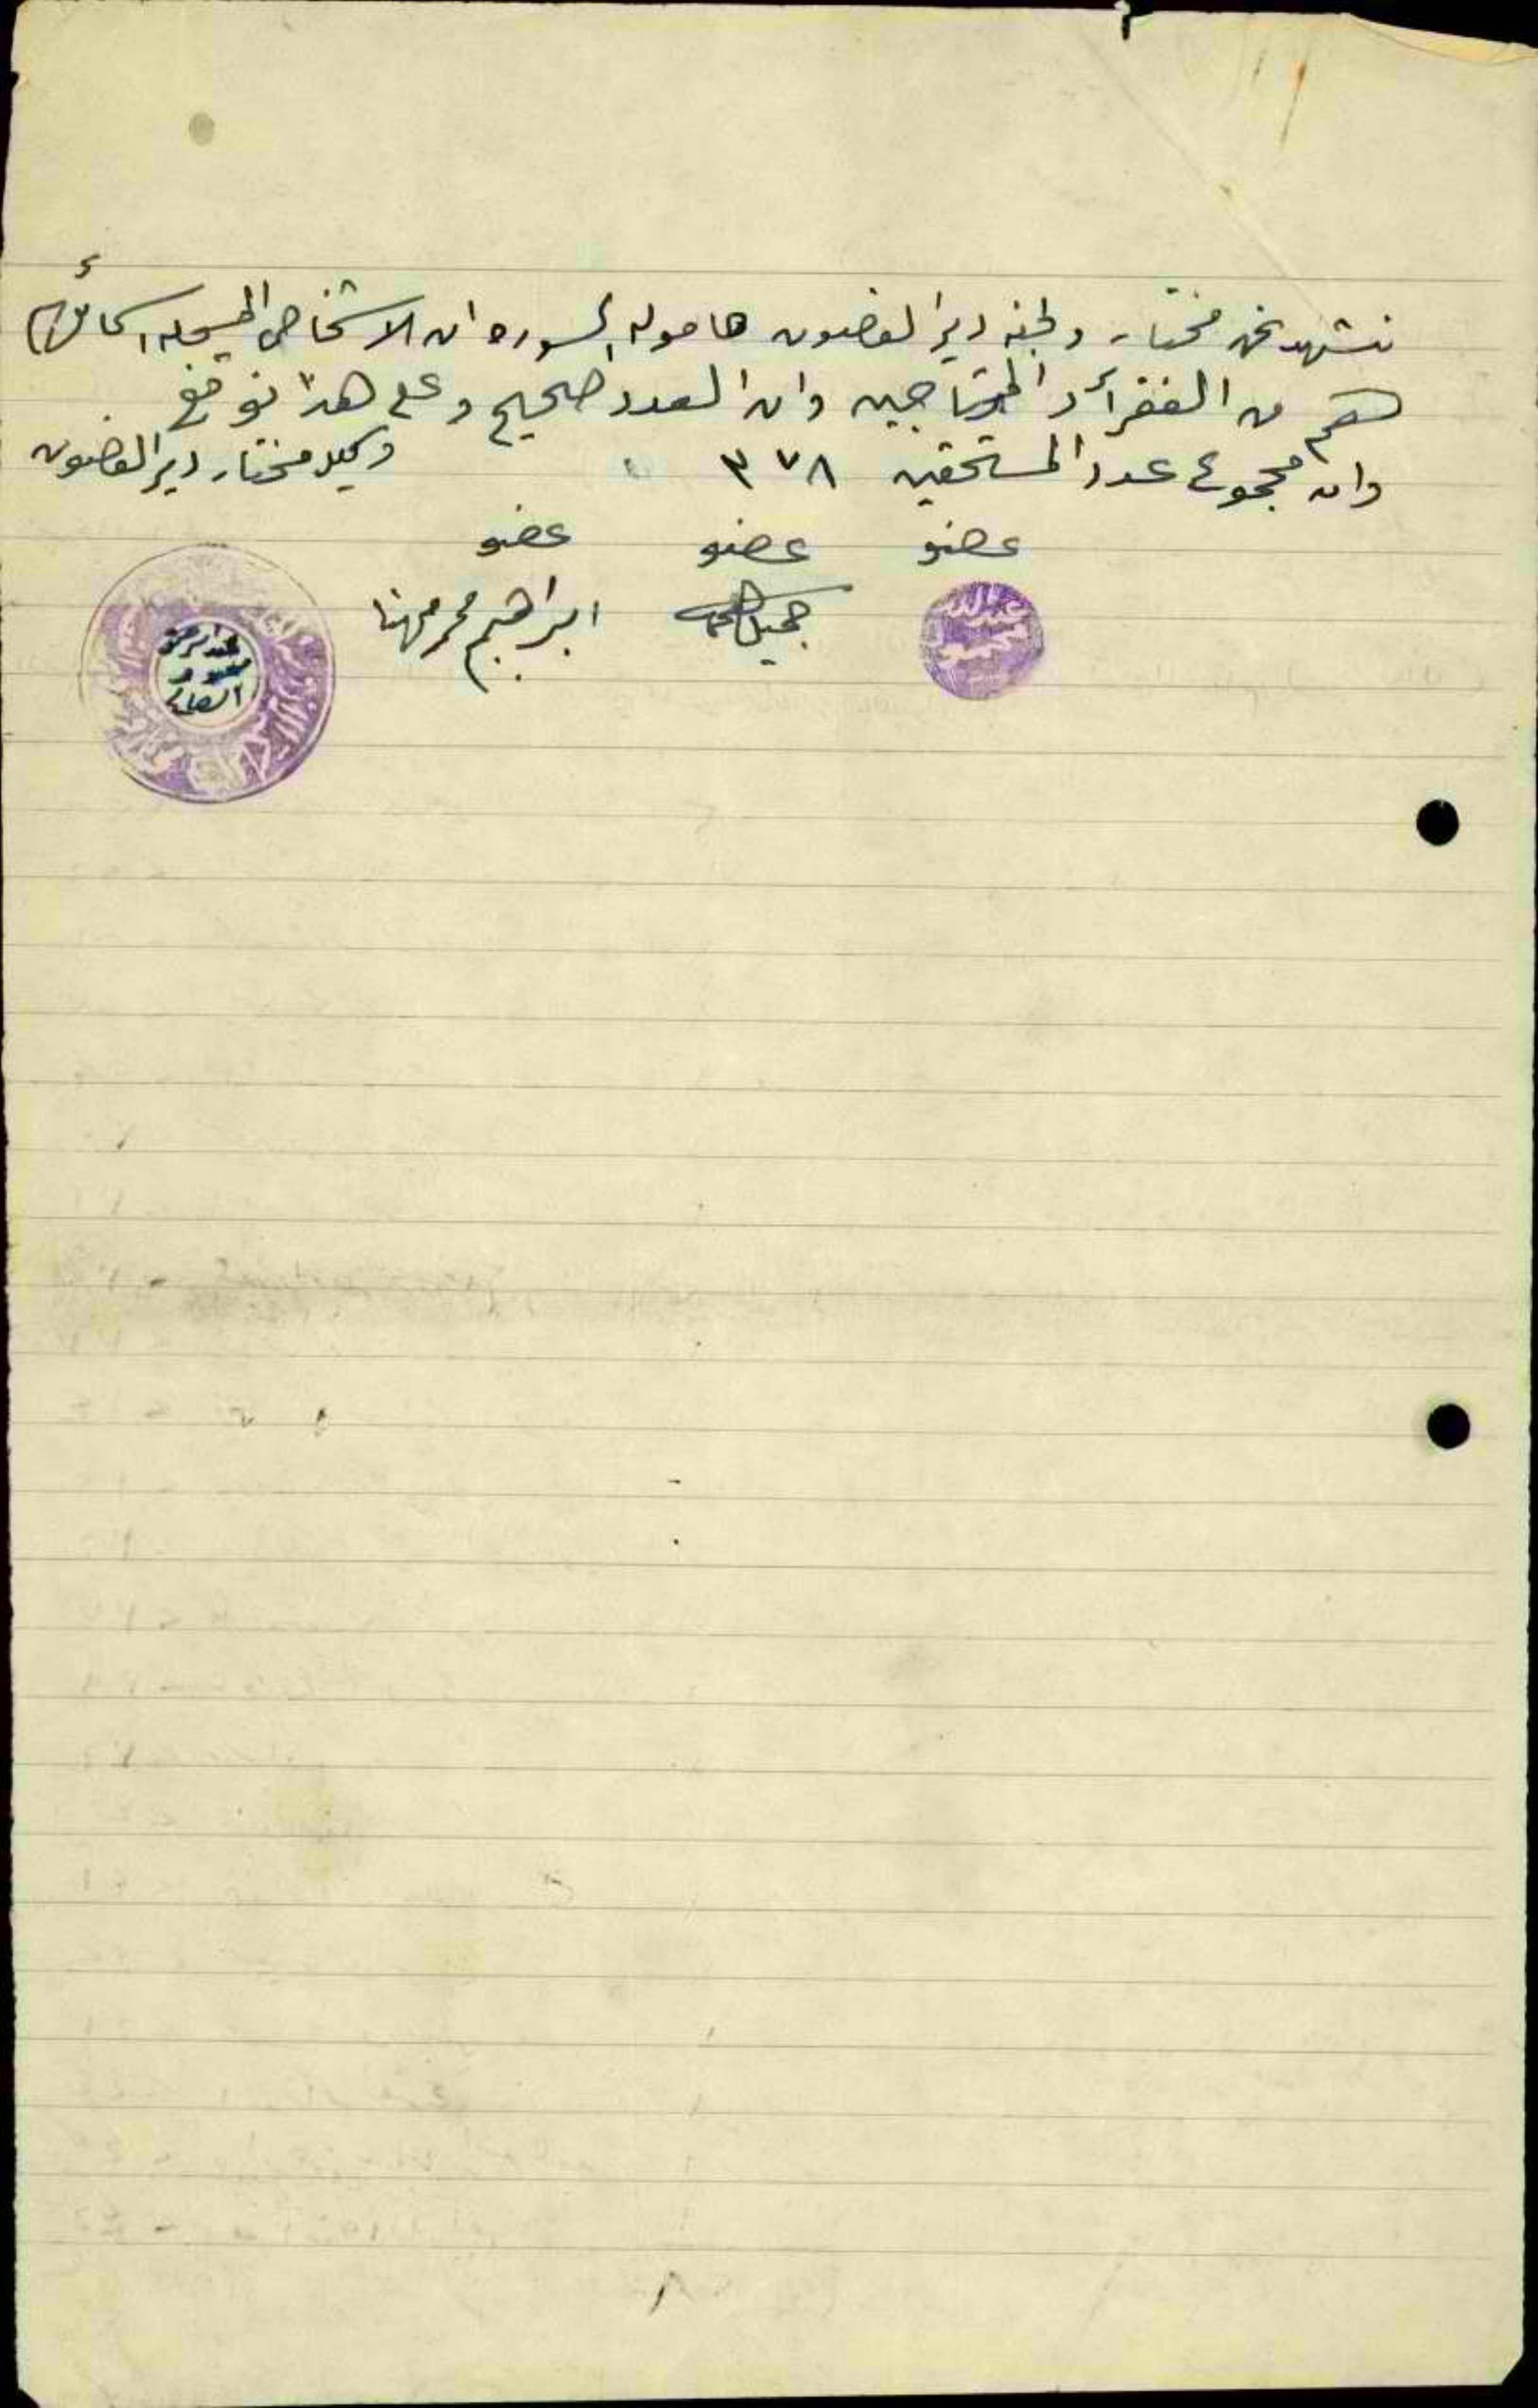 نشهد نحن مختار ولجنه دير الغصون حامولة السوره ان الاشخاص المسجله اسمائهم
هم من الفقرأ والمحتاجين وان العدد صحيح وعلى هذا نوقع
وان مجموع عدد المستحقين ٣٧٨
وكيل مختار دير الغصون
عضو عضو عضو
عبدالله محمود
جميل
ابراهيم محمد مهنا
عبد الرحمن
محمود